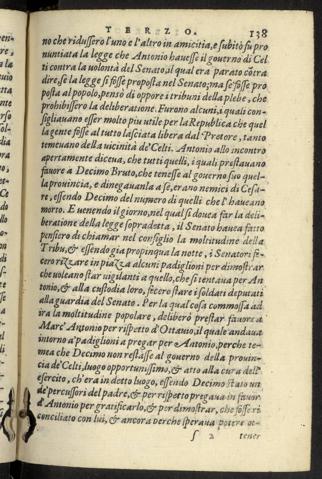 TERZO. 138
no che ridussero l'uno e l'altro in amicitia, e subitò fu pro
nuntiata la legge che Antonio hauesse il gouerno di Cel
ti contra la volontà del Senato, il qual era parato còtra
dire, se la legge si fosse proposta nel Senato; ma se fosse pro
posta al popolo, pensò di oppore i tribuni della plebe, che
prohibissero la deliberatione. Furono alcuni, i quali con-
sigliauano esser molto piu utile per la Republica che quel
la gente fosse al tutto lasciata libera dal Pretore, tanto
temeuano della vicinità de' Celti. Antonio allo incontro
apertamente diceua, che tutti quelli, i quali prestauano
fauore à Decimo Bruto, che tenesse al gouerno suo quel-
la prouincia, e dinegauanla a se, erano nemici di Cesa-
re, essendo Decimo del numero di quelli che l'haueano
morto. E uenendo il giorno, nel qual si doueа far la deli-
beratione della legge sopradetta, il Senato hauea fatto
pensiero di chiamar nel consiglio la moltitudine della
Tribu, & essendo gia propinqua la notte, i Senatori fe-
cero rizzare in piazza alcuni padiglioni per dimostrar
che uoleano star uigilanti a quello, che si tentaua per An
tonio, & alla custodia loro, fecero stare i soldati deputati
alla guardia del Senato. Per la qual cosa commossa ad
ira la moltitudine popolare, deliberò prestar fauore a
Marc' Antonio per rispetto d'Ottauio, il quale andaua
intorno a' padiglioni a pregar per Antonio, perche te-
mea che Decimo non restasse al gouerno della prouin-
cia de' Celti, luogo opportunissimo, & atto alla cura dell'
esercito, ch'era in detto luogo, essendo Decimo stato un
de' percussori del padre, & per rispetto pregaua in fauor
d'Antonio per gratificarlo, & per dimostrar, che fosse ri
conciliato con lui, & ancora perche speraua potere ot-
s 2 tener